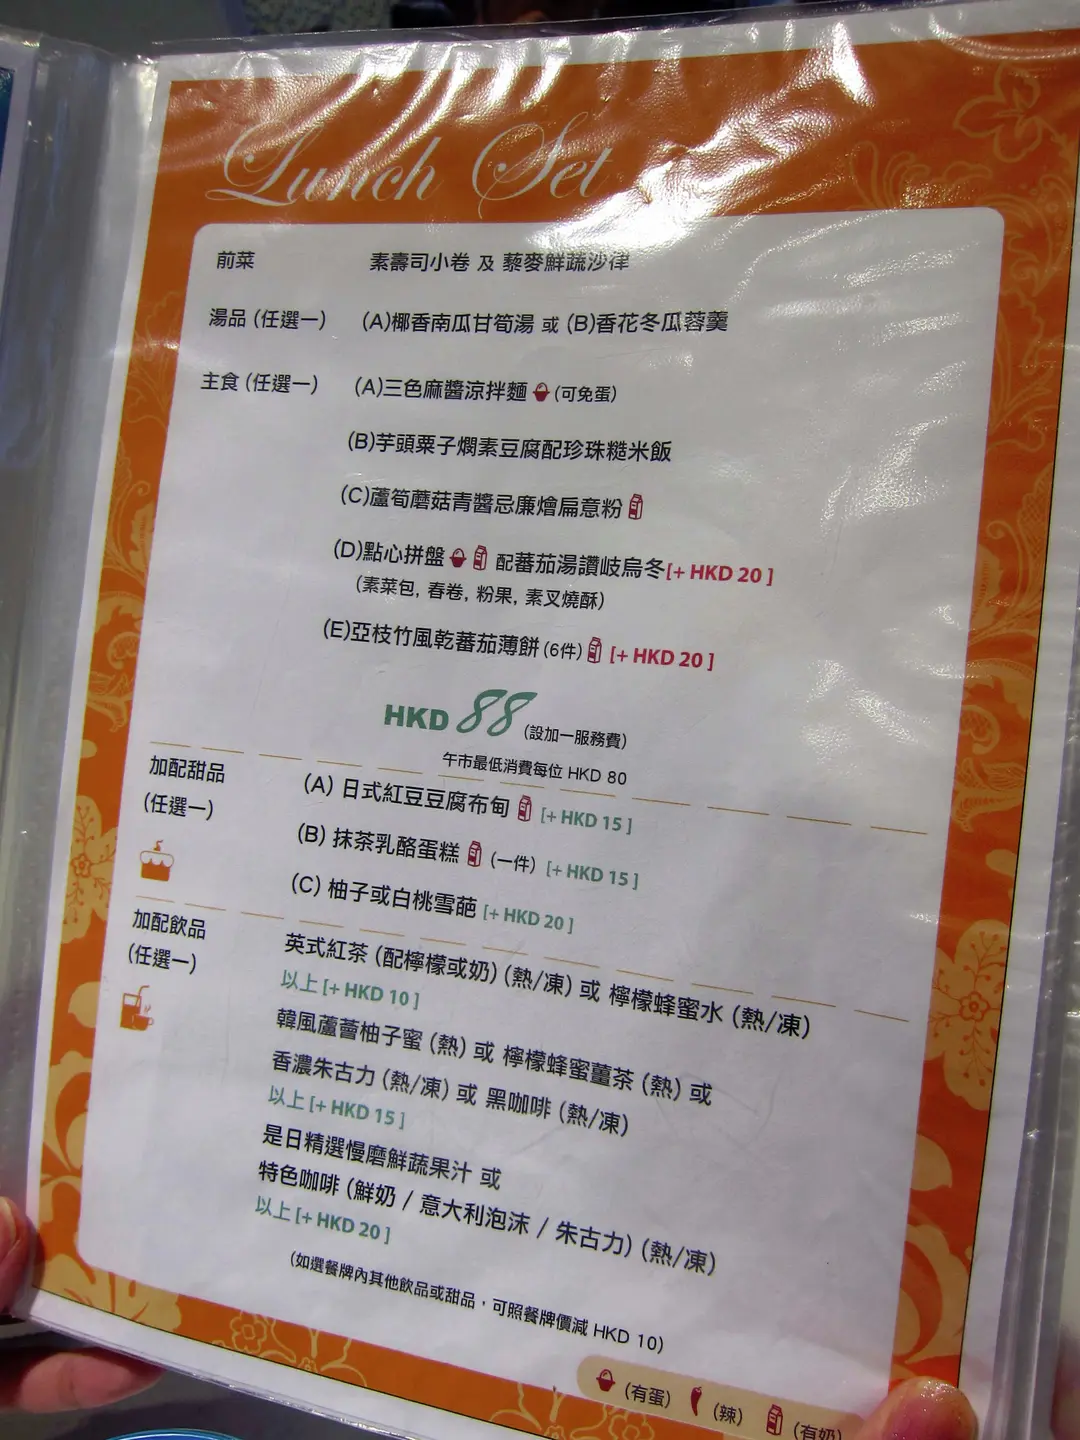 Lunch Set
前菜 素壽司小卷 及 藜麥鮮蔬沙律
湯品 (任選一) (A)椰香南瓜甘筍湯 或 (B)香花冬瓜蓉羹
主食 (任選一) (A)三色麻醬涼拌麵 (可免蛋)
(B)芋頭栗子燜素豆腐配珍珠糙米飯
(C)蘆筍蘑菇青醬忌廉燴扁意粉
(D)點心拼盤 配蕃茄湯讚岐烏冬[+ HKD 20 ]
(素菜包, 春卷, 粉果, 素叉燒酥)
(E)亞枝竹風乾蕃茄薄餅 (6件) [+ HKD 20 ]
HKD 88 (設加一服務費)
午市最低消費每位 HKD 80
加配甜品 (任選一)
(A) 日式紅豆豆腐布甸 [+ HKD 15 ]
(B) 抹茶乳酪蛋糕 (一件) [+ HKD 15 ]
(C) 柚子或白桃雪葩 [+ HKD 20 ]
加配飲品 (任選一)
英式紅茶 (配檸檬或奶) (熱/凍) 或 檸檬蜂蜜水 (熱/凍)
以上 [+ HKD 10 ]
韓風蘆薈柚子蜜 (熱) 或 檸檬蜂蜜薑茶 (熱) 或
香濃朱古力 (熱/凍) 或 黑咖啡 (熱/凍)
以上 [+ HKD 15 ]
是日精選慢磨鮮蔬果汁 或
特色咖啡 (鮮奶 / 意大利泡沫 / 朱古力) (熱/凍)
以上 [+ HKD 20 ]
(如選餐牌內其他飲品或甜品，可照餐牌價減 HKD 10)
(有蛋) (辣) (有奶)